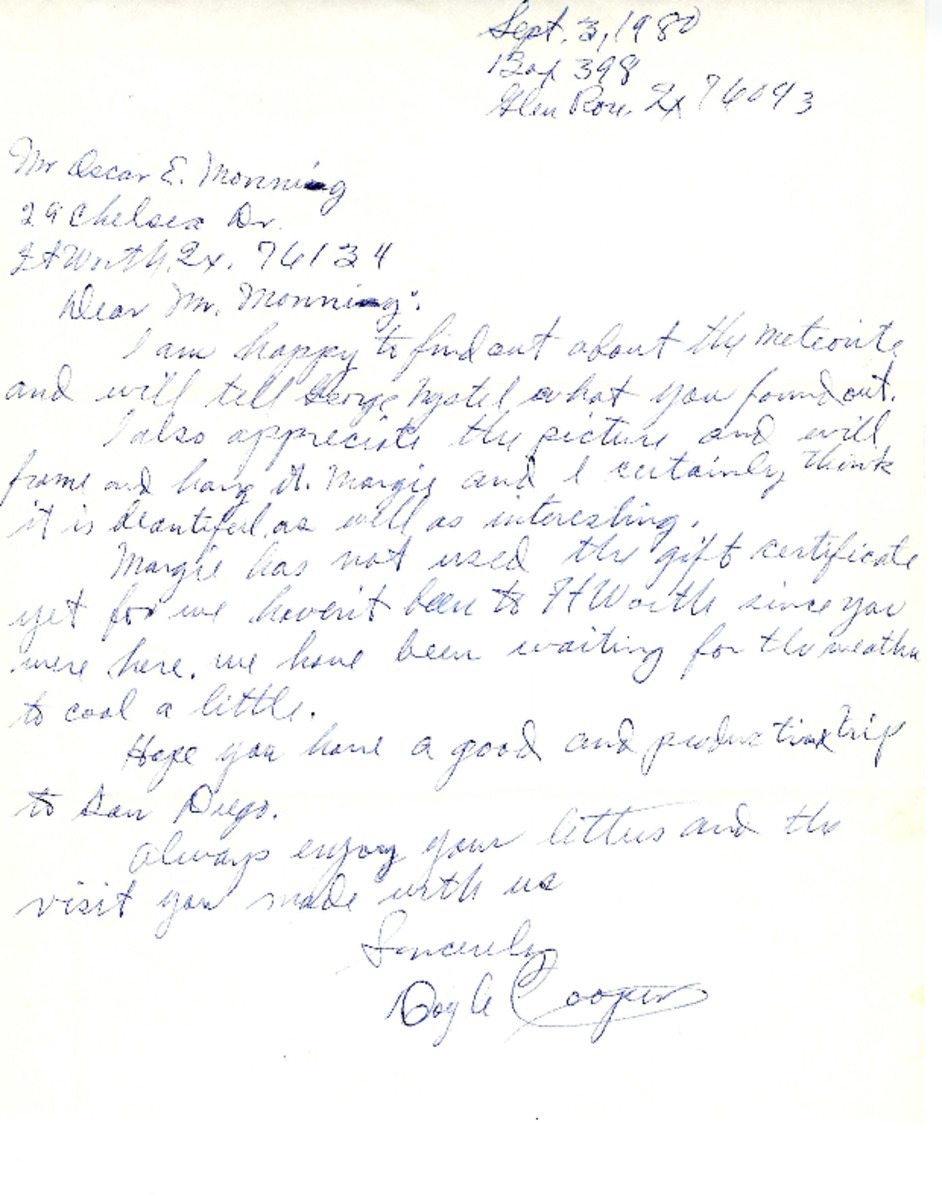 Sept. 3, 1980
Box 398
Glen Rose, Tx 76043
Mr Oscar E. Monnig
29 Chelsea Dr.
Ft Worth, Tx. 76134
Dear Mr. Monnig:
I am happy to find out about the meteorite
and will tell George what you found out.
I also appreciate the picture and will
frame and hang it. Margie and I certainly think
it is beautiful as well as interesting.
Margie has not used the gift certificate
yet for we haven't been to Ft Worth since you
were here. we have been waiting for the weather
to cool a little.
Hope you have a good and productive trip
to San Diego.
Always enjoy your letters and the
visit you made with us
Sincerely
Doyle Cooper